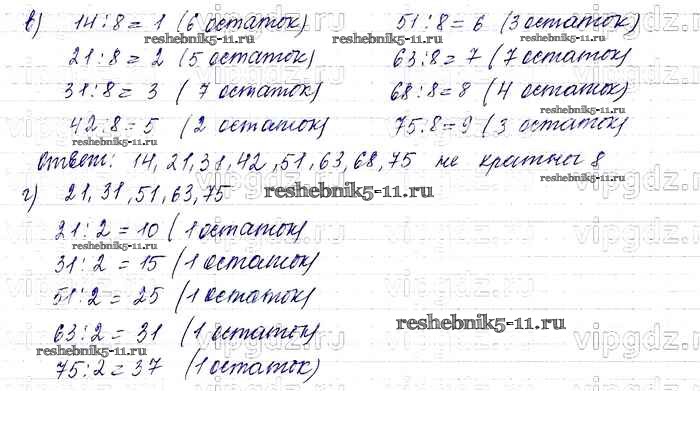 в) 14:8= 1 (6 остаток) 51:8= 6 (3 остаток)
reshebnik5-11.ru reshebnik5-11.ru
21:8= 2 (5 остаток) 63:8= 7 (7 остаток)
31:8= 3 (7 остаток) 68:8=8 (4 остаток)
reshebnik5-11.ru reshebnik5-11.ru
42:8=5 (2 остаток) 75:8=9 (3 остаток)
Ответ: 14,21,31,42,51,63,68,75 не кратног 8
reshebnik5-11.ru
г) 21,31,51,63,75 reshebnik5-11.ru
21:2 = 10 (1 остаток)
reshebnik5-11.ru
31:2 = 15 (1 остаток)
51:2 = 25 (1 остаток)
63:2 = 31 (1 остаток) reshebnik5-11.ru
reshebnik5-11.ru
75:2= 37 (1 остаток)
vipgdz.ru
vipgdz.ru
vipgdz.ru
vipgdz.ru
vipgdz.ru